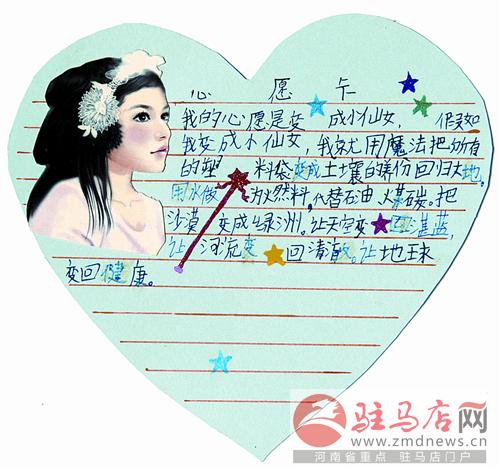 心愿卡
我的心愿是变成小仙女,假如
我变成小仙女,我就用魔法把所有
的塑料袋变成土壤的养份回归大地。
用水做为燃料,代替石油、煤碳。把
沙漠变成绿洲。让天空变回湛蓝,
让河流变回清澈。让地球
变回健康。
驻马店网
www.zmdnews.cn
河南省重点 驻马店门户